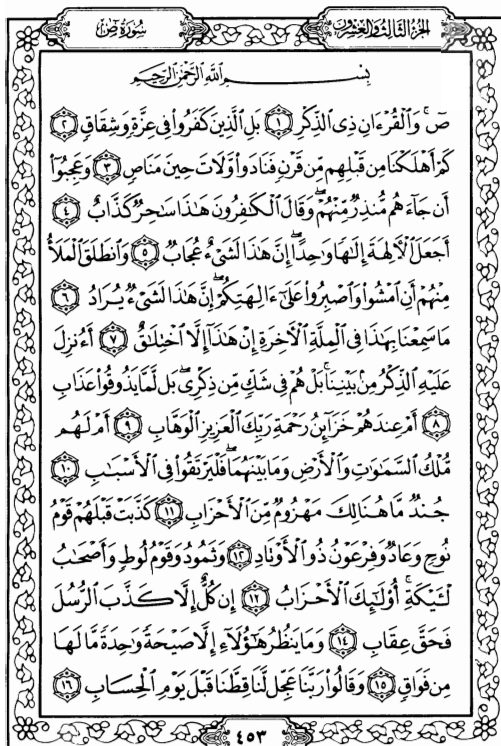 الجزء الثالث والعشرون
سورة ص
بِسْمِ اللَّهِ الرَّحْمَٰنِ الرَّحِيمِ
صٓ ۚ وَٱلْقُرْءَانِ ذِى ٱلذِّكْرِ ١ بَلِ ٱلَّذِينَ كَفَرُوا۟ فِى عِزَّةٍ وَشِقَاقٍ ٢
كَمْ أَهْلَكْنَا مِن قَبْلِهِم مِّن قَرْنٍ فَنَادَوا۟ وَّلَاتَ حِينَ مَنَاصٍ ٣ وَعَجِبُوٓا۟
أَن جَآءَهُم مُّنذِرٌ مِّنْهُمْ ۖ وَقَالَ ٱلْكَٰفِرُونَ هَٰذَا سَٰحِرٌ كَذَّابٌ ٤
أَجَعَلَ ٱلْءَالِهَةَ إِلَٰهًا وَٰحِدًا ۖ إِنَّ هَٰذَا لَشَىْءٌ عُجَابٌ ٥ وَٱنطَلَقَ ٱلْمَلَأُ
مِنْهُمْ أَنِ ٱمْشُوا۟ وَٱصْبِرُوا۟ عَلَىٰٓ ءَالِهَتِكُمْ ۖ إِنَّ هَٰذَا لَشَىْءٌ يُرَادُ ٦
مَا سَمِعْنَا بِهَٰذَا فِى ٱلْمِلَّةِ ٱلْءَاخِرَةِ إِنْ هَٰذَآ إِلَّا ٱخْتِلَٰقٌ ٧ أَءُنزِلَ
عَلَيْهِ ٱلذِّكْرُ مِنۢ بَيْنِنَا ۚ بَلْ هُمْ فِى شَكٍّ مِّن ذِكْرِى ۖ بَل لَّمَّا يَذُوقُوا۟ عَذَابِ
٨ أَمْ عِندَهُمْ خَزَآئِنُ رَحْمَةِ رَبِّكَ ٱلْعَزِيزِ ٱلْوَهَّابِ ٩ أَمْ لَهُم
مُّلْكُ ٱلسَّمَٰوَٰتِ وَٱلْأَرْضِ وَمَا بَيْنَهُمَا ۖ فَلْيَرْتَقُوا۟ فِى ٱلْأَسْبَٰبِ ١٠
جُندٌ مَّا هُنَالِكَ مَهْزُومٌ مِّنَ ٱلْأَحْزَابِ ١١ كَذَّبَتْ قَبْلَهُمْ قَوْمُ
نُوحٍ وَعَادٌ وَفِرْعَوْنُ ذُو ٱلْأَوْتَادِ ١٢ وَثَمُودُ وَقَوْمُ لُوطٍ وَأَصْحَٰبُ
لْـَٔيْكَةِ ۚ أُو۟لَٰٓئِكَ ٱلْأَحْزَابُ ١٣ إِن كُلٌّ إِلَّا كَذَّبَ ٱلرُّسُلَ
فَحَقَّ عِقَابِ ١٤ وَمَا يَنظُرُ هَٰٓؤُلَآءِ إِلَّا صَيْحَةً وَٰحِدَةً مَّا لَهَا
مِن فَوَاقٍ ١٥ وَقَالُوا۟ رَبَّنَا عَجِّل لَّنَا قِطَّنَا قَبْلَ يَوْمِ ٱلْحِسَابِ ١٦
٤٥٣